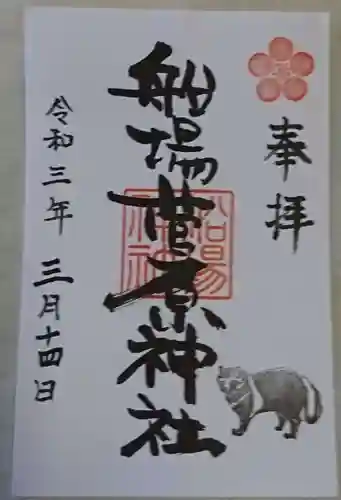 奉拝
船場菅原神社
令和三年 三月十四日